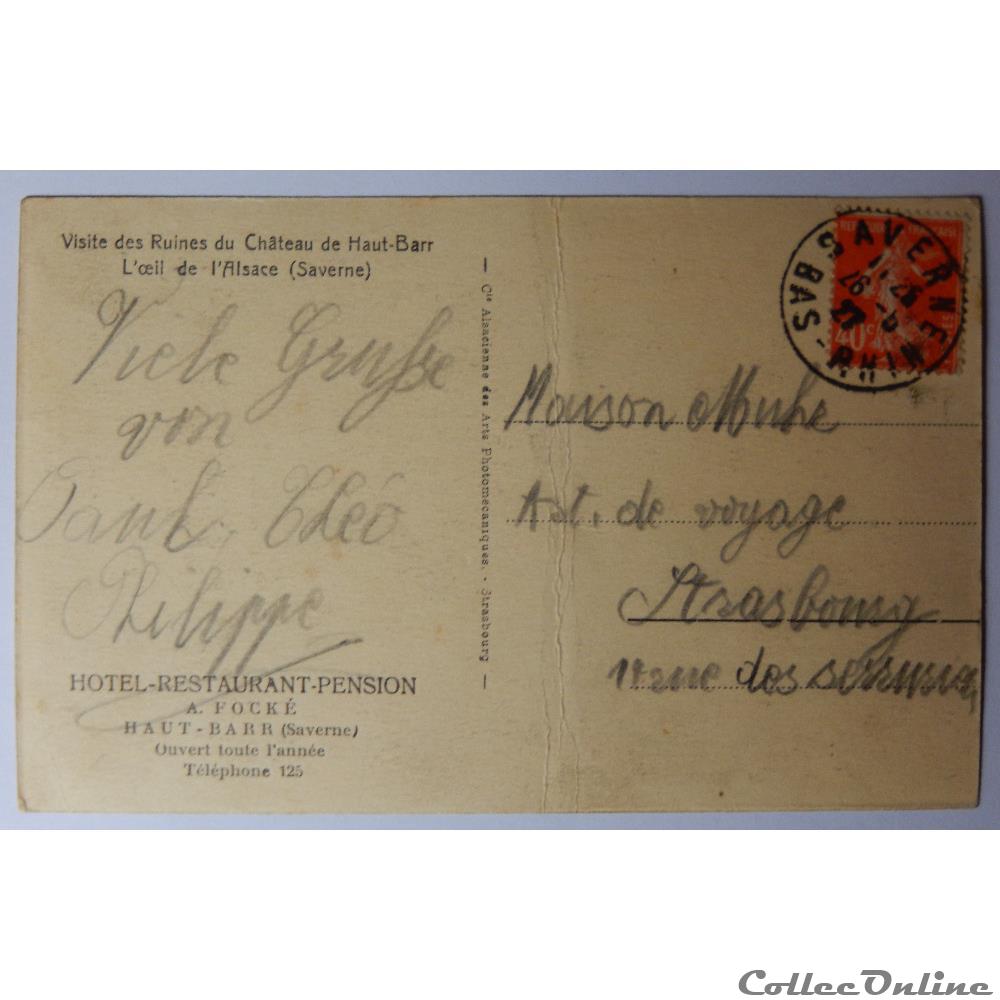 Visite des Ruines du Château de Haut-Barr
L'œil de l'Alsace (Saverne)
Viele Grüße
von
Paul. Théo
Philippe
HOTEL-RESTAURANT-PENSION
A. FOCKÉ
HAUT-BARR (Saverne)
Ouvert toute l'année
Téléphone 125
— Cie Alsacienne des Arts Photomécaniques. - Strasbourg —
SAVERNE
BAS-RHIN
26 -6
27
40c
Maison Muhe
Art. de voyage
Strasbourg
rue des serruriers
CollecOnline